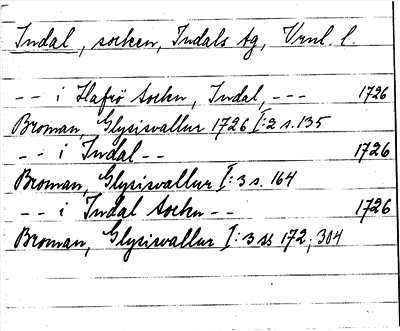 Indal, socken, Indals tg, Vrnl. l.
-- i Hafrö Socken, Indal, --- 1726
Broman, Glysisvallur 1726 I:2 s. 135
-- i Indal -- 1726
Broman, Glysisvallur I:3 s. 164
-- i Indal Socken -- 1726
Broman, Glysisvallur I:3 ss 172, 304